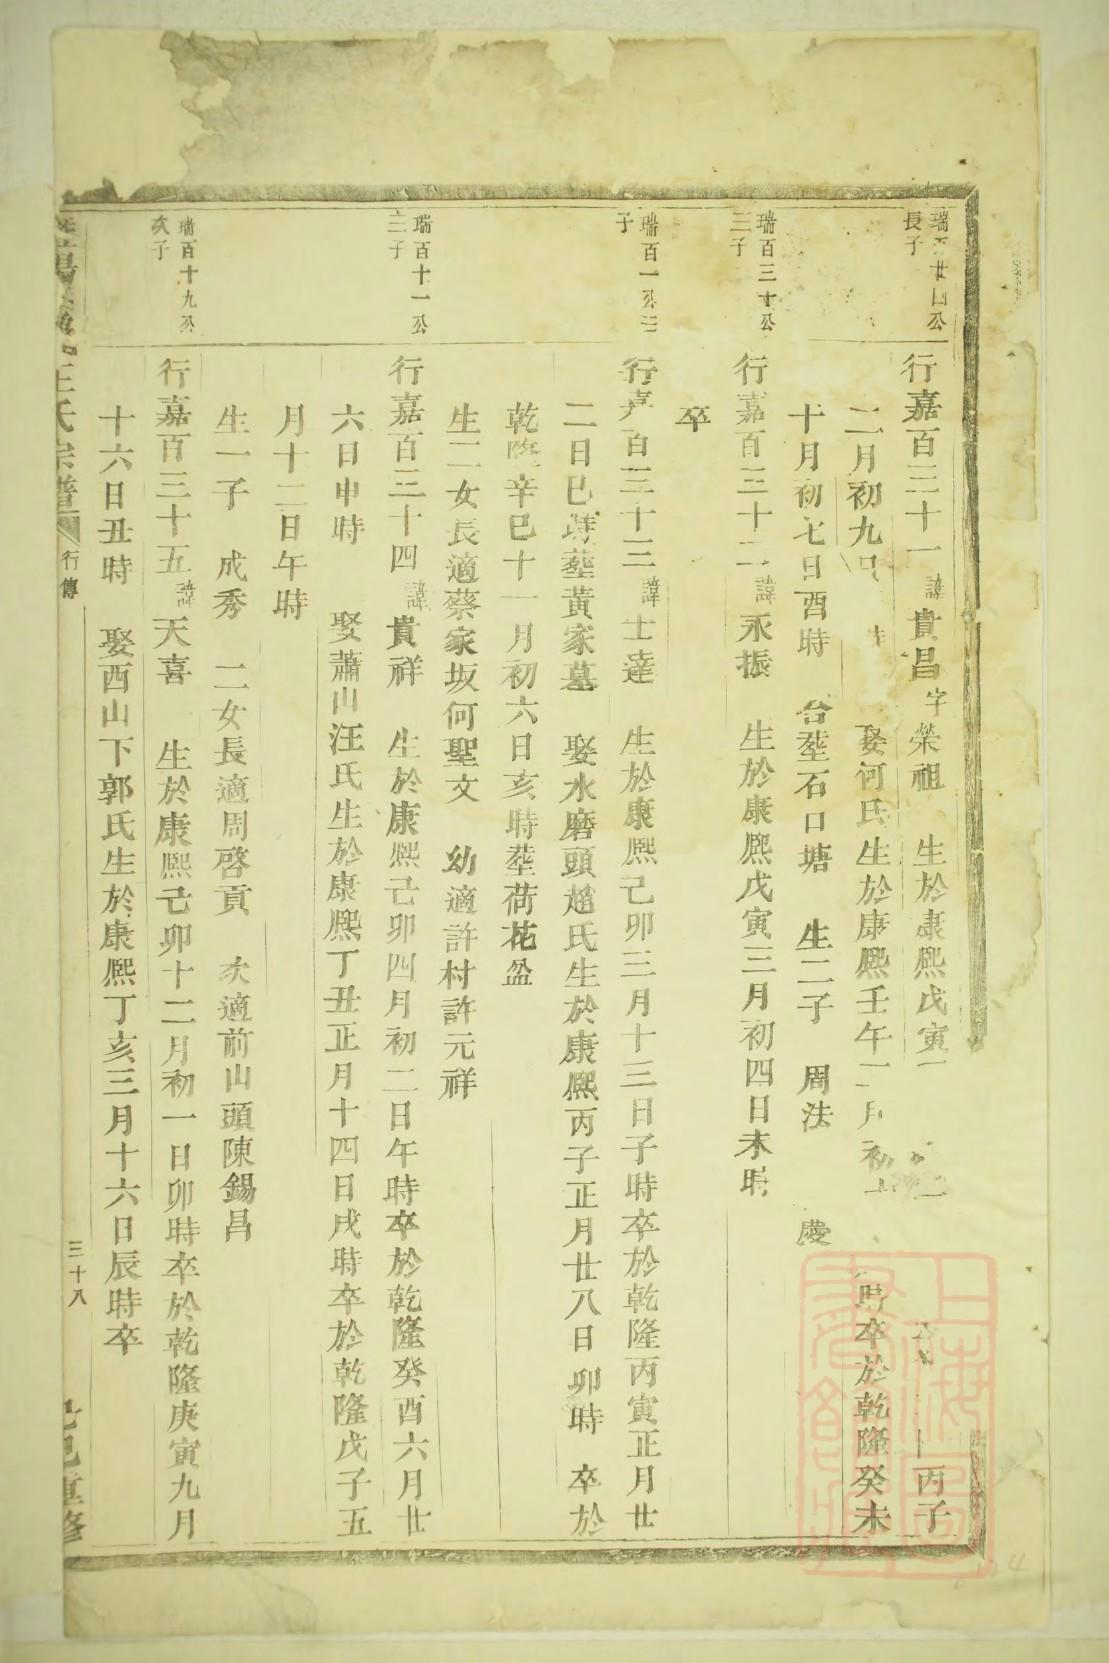 瑞百廿四公
長子
行嘉百三十一 諱貴昌 字榮祖 生於康熙戊寅 丙子
二月初九 娶何氏生於康熙壬午二月初 時卒於乾隆癸未
十月初七日酉時 合塟石口塘 生二子 周法 慶
瑞百三十公
三子
行嘉百三十二 諱永振 生於康熙戊寅三月初四日未時
卒
瑞百一公三
子
行嘉百三十三 諱士達 生於康熙己卯三月十三日子時卒於乾隆丙寅正月廿
二日巳時塟黃家墓 娶水磨頭趙氏生於康熙丙子正月廿八日卯時 卒於
乾隆辛巳十一月初六日亥時塟荷花盆
生二女長適蔡家坂何聖文 幼適許村許元祥
瑞百十一公
三子
行嘉百三十四 諱貴祥 生於康熙己卯四月初二日午時卒於乾隆癸酉六月廿
六日申時 娶蕭山汪氏生於康熙丁丑正月十四日戌時卒於乾隆戊子五
月十二日午時
生一子 成秀 二女長適周啓貢 次適前山頭陳錫昌
瑞百十九公
次子
行嘉百三十五 諱天喜 生於康熙己卯十二月初一日卯時卒於乾隆庚寅九月
十六日丑時 娶西山下郭氏生於康熙丁亥三月十六日辰時卒
王氏宗譜 行傳 三十八 己巳重修
上海圖書館藏